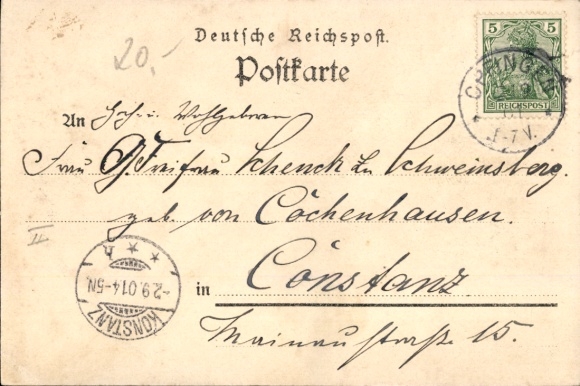 20.-
Deutsche Reichspost.
Postkarte
5 5
REICHSPOST
-7 V.
An Hoch- u. Wohlgeboren
Frau Freifrau Schenck zu Schweinsberg.
geb. von Cochenhausen.
II
in Constanz
Mainaustraße 15.
KONSTANZ
-2.9.01.4-5N.